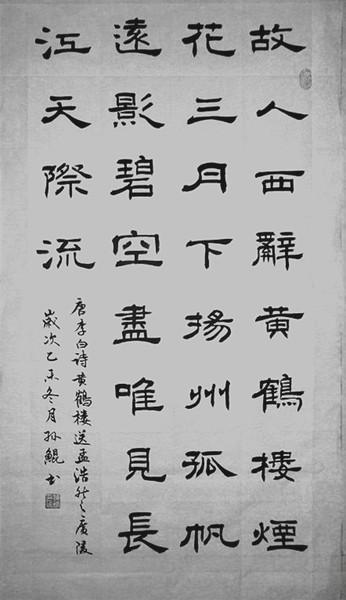 故人西辭黄鶴樓煙
花三月下揚州孤帆
遠影碧空盡唯見長
江天際流
唐李白诗黄鶴樓送孟浩然之廣陵
歲次乙未冬月孙鲲书